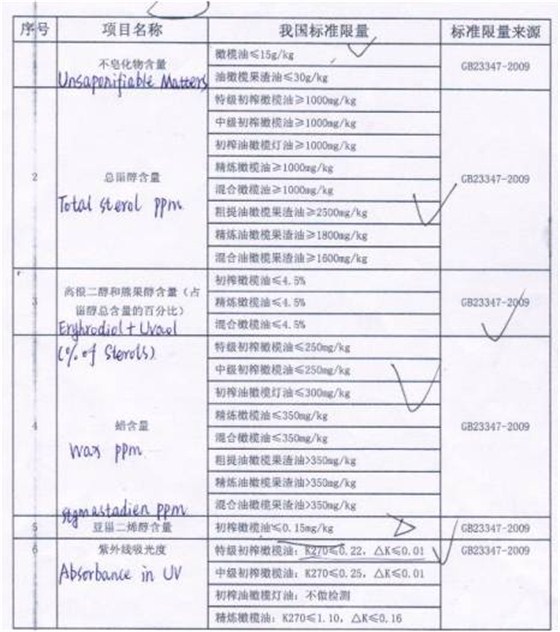 序号 项目名称 我国标准限量 标准限量来源
1 不皂化物含量 橄榄油≤15g/kg GB23347-2009
Unsaponifiable Matters 油橄榄果渣油≤30g/kg
特级初榨橄榄油≥1000mg/kg
中级初榨橄榄油≥1000mg/kg
初榨油橄榄灯油≥1000mg/kg
精炼橄榄油≥1000mg/kg
2 总甾醇含量 混合橄榄油≥1000mg/kg GB23347-2009
Total sterol ppm 粗提油橄榄果渣油≥2500mg/kg
精炼油橄榄果渣油≥1800mg/kg
混合油橄榄果渣油≥1600mg/kg
3 高根二醇和熊果醇含量（占 初榨橄榄油≤4.5% GB23347-2009
甾醇总含量的百分比） 精炼橄榄油≤4.5%
Erythrodiol + Uvaol 混合橄榄油≤4.5%
(% of Sterols) 特级初榨橄榄油≤250mg/kg
中级初榨橄榄油≤250mg/kg
初榨油橄榄灯油≤300mg/kg
精炼橄榄油≤350mg/kg
4 蜡含量 混合橄榄油≤350mg/kg GB23347-2009
Wax ppm 粗提油橄榄果渣油>350mg/kg
精炼油橄榄果渣油>350mg/kg
Stigmastadien ppm 混合油橄榄果渣油>350mg/kg
5 豆甾二烯醇含量 初榨橄榄油≤0.15mg/kg GB23347-2009
6 紫外线吸光度 特级初榨橄榄油：K270≤0.22，△K≤0.01 GB23347-2009
Absorbance in UV 中级初榨橄榄油：K270≤0.25，△K≤0.01
初榨油橄榄灯油：不做检测
精炼橄榄油：K270≤1.10，△K≤0.16